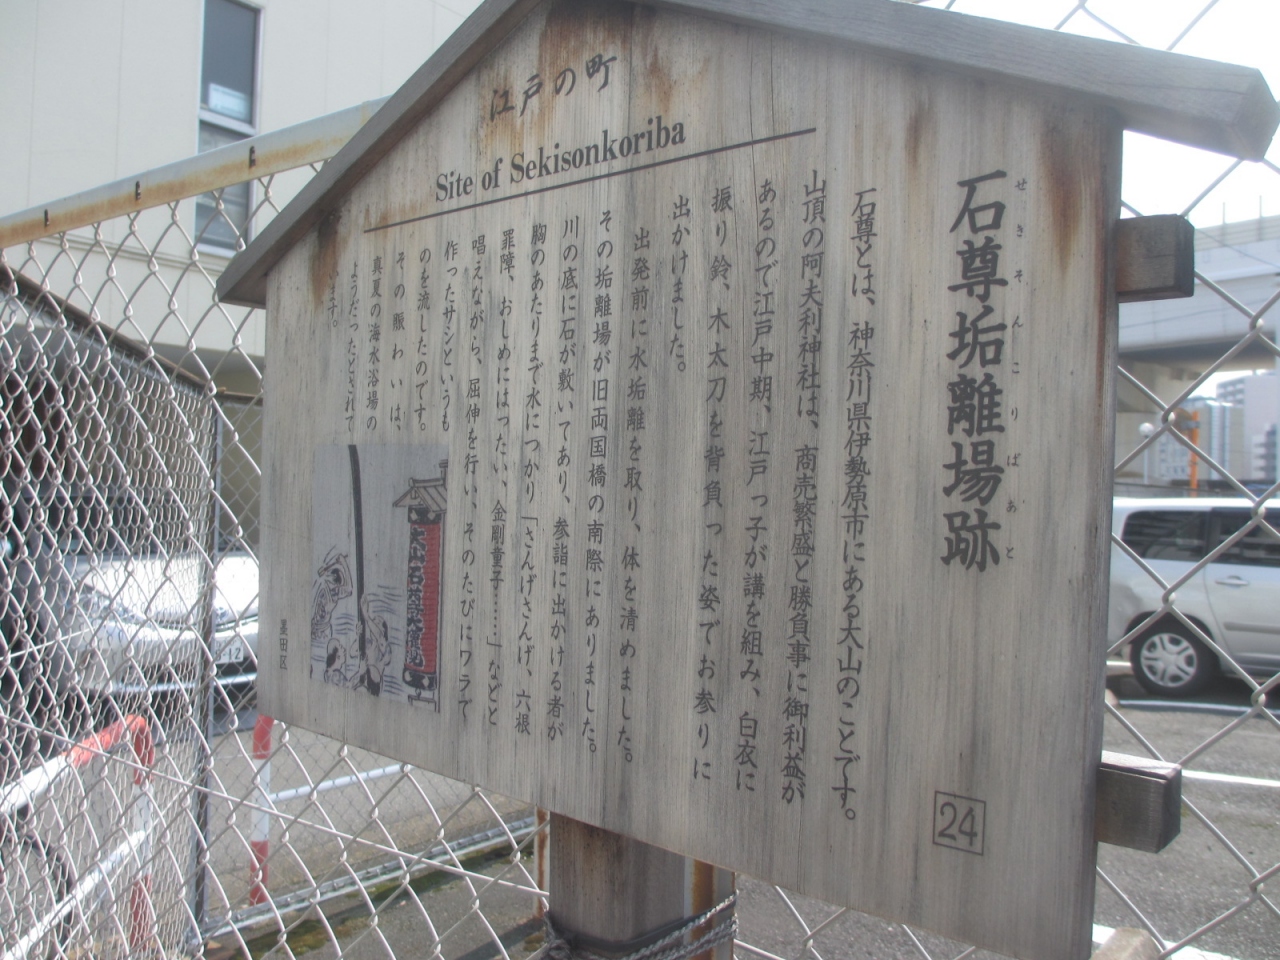 江戸の町
Site of Sekisonkoriba
せきそんこりばあと
石尊垢離場跡
24
石尊とは、神奈川県伊勢原市にある大山のことです。
山頂の阿夫利神社は、商売繁盛と勝負事に御利益が
あるので江戸中期、江戸っ子が講を組み、白衣に
振り鈴、木太刀を背負った姿でお参りに
出かけました。
出発前に水垢離を取り、体を清めました。
その垢離場が旧両国橋の南際にありました。
川の底に石が敷いてあり、参詣に出かける者が
胸のあたりまで水につかり「さんげさんげ、六根
罪障、おしめにはったい、金剛童子……」などと
唱えながら、屈伸を行い、そのたびにワラで
作ったサシというも
のを流したのです。
その賑わいは、
真夏の海水浴場の
ようだったとされて
います。
墨田区